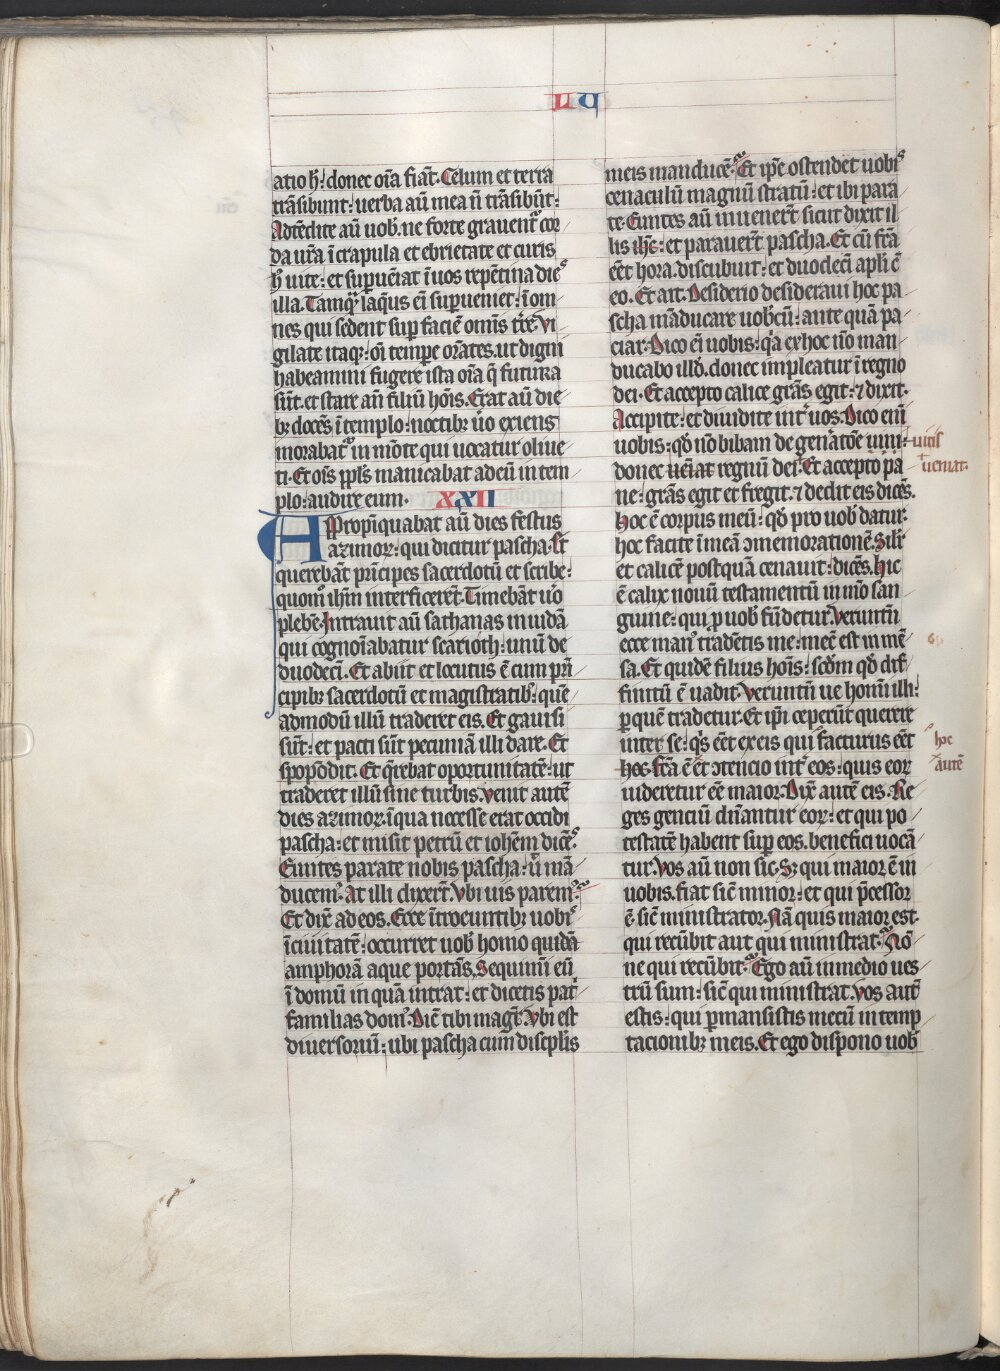 LU
atio h̄: donec oīa fiāt. Celum et terra
trāsibunt: uerba aū mea ñ trāsibūt:
Adtēdite aū uob. ne forte grauent᷑ cor
da ur̄a ī crapula et ebrietate et curis
h̄ uite: et suꝑuēiat ī uos repētina dieꝰ
illa. Tamq̄ laq̄us eī suꝑueniet: ī om
nes qui sedent suꝑ faciē om̄is tr̄e. Vi
gilate itaqꝫ: oī tempe orātes. ut digni
habeamini fugere ista oīa q̄ futura
sūt. et stare añ filiū hoīs. Erat aū die
bꝫ docēs ī templo: noctibꝫ ūo exiens
morabat᷑ in mōte qui uocatur oliue
ti. Et oīs ppl̄s manicabat ad eū in tem
plo: audire eum. XXII
Appropīquabat aū dies festus
azimoꝝ: qui dicitur pascha. Et
querebāt pricipes sacerdotū et scribe:
quom̊ ihm̄ interficerēt. Timebāt ūo
plebē. Intrauit aū sathanas in iudā
qui cognoīabatur scarioth: unū de
duodecī. Et abiit et locutus ē cum pri
cipibꝫ sacerdotū et magistratibꝫ: quē
admodū illū traderet eis. Et gauisi
sūt: et pacti sūt pecuniā illi dare. Et
spopōdit. Et q̄rebat oportunitatē: ut
traderet illū sine turbis. Venit autē
dies azimoꝝ: ī qua necesse erat occidi
pascha: et misit petrū et iohem̄ dicēꝰ.
Euntes parate nobis pascha: ut mā
ducemꝰ. At illi dixer̄t. Vbi uis paremꝰ.
Et dix̄ ad eos. Ecce ītroeuntibꝫ uobiꝰ
ī ciuitatē: occurret uob̄ homo quidā
amphorā aque portās. Sequimī eū
ī domū in quā intrat: et dicetis pat̄
familias domꝰ. Dic̄ tibi magr̄. Vbi est
diuersoriū: ubi pascha cum discplīs
meis manducē. Et ip̄e ostendet uobiꝰ
cenaculū magnū stratū: et ibi para
te. Euntes aū inuener̄t sicut dixit il
lis ihs̄: et parauer̄t pascha. Et cū fc̄a
eēt hora. discubuit: et duodecī apl̄i c̄
eo. Et ait. Desiderio desideraui hoc pa
scha māducare uob̄cū: ante quā pa
ciar. Dico eī uobis: q̄a ex hoc nō man
ducabo illd̄. donec impleatur ī regno
dei. Et accepto calice grās egit: ⁊ dixit.
Accipite: et diuidite int᷑ uos. Dico enī
uobis: qd̄ nō bibam de gen̄atōe uini:
uitis
donec ueniat regnū dei. Et accepto pa
ueniat.
ne: grās egit et fregit. ⁊ dedit eis dicēs.
Hoc ē corpus meū: qd̄ pro uob̄ datur.
hoc facite ī meā ɔmemorationē. Silr̄
et calicē postquā cenauit: dicēs. Hic
ē calix nouū testamentū in meo san
guine: qui ꝓ uob̄ fūdetur. Veruntū
ecce man᷒ tradētis me: mec̄ est in mē
sa. Et quidē filius hoīs: scd̄m qd̄ dif
finitū ē uadit. Veruntū ue homī illi:
ꝑ quē tradetur. Et ip̄i ceperūt querere
inter se: qīs eēt ex eis qui facturus eēt
hoc
hoc. Fc̄a ē et ɔtencio int᷑ eos: quis eoꝝ
autē
uideretur eē maior. Dix̄ autē eis. Re
ges genciū dn̄antur eoꝝ: et qui po
testatē habent suꝑ eos. benefici uocā
tur. Vos aū non sic. Sꝫ qui maior ē in
uobis. fiat sic̄ minor: et qui p̄cessor
ē sic̄ ministrator. Nā quis maior est.
qui recūbit aut qui ministrat. Nō
ne qui recūbit. Ego aū in medio ues
trū sum: sic̄ qui ministrat. Vos aut̄
estis: qui ꝑmansistis mecū in temp
tacionibꝫ meis. Et ego dispono uob̄